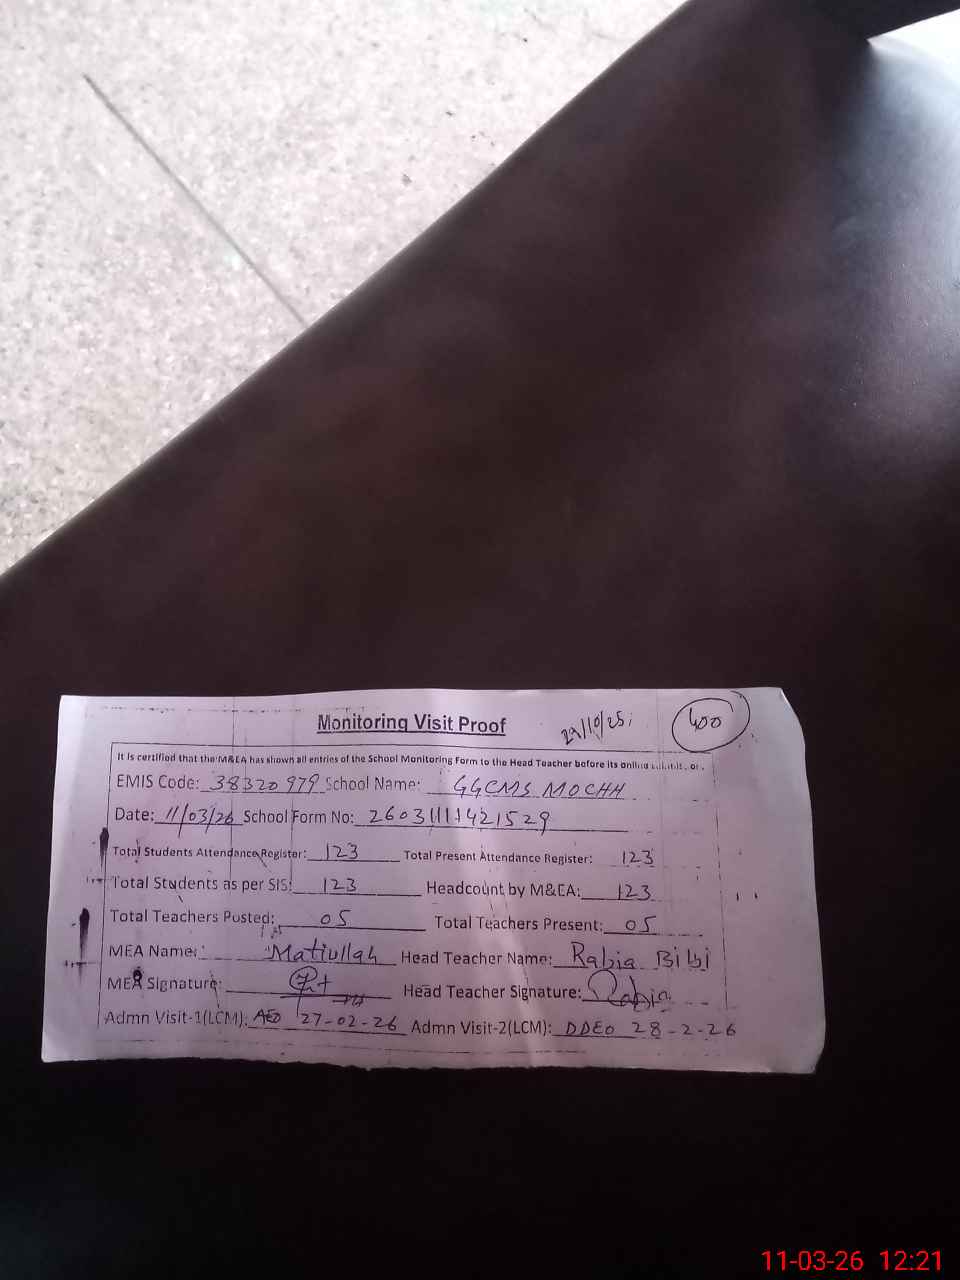 Monitoring Visit Proof 29/10/25 400
It is certified that the M&EA has shown all entries of the School Monitoring Form to the Head Teacher before its online
EMIS Code: 38320979 School Name: GGCMS MOCHH
Date: 11/03/26 School Form No: 2603111421529
Total Students Attendance Register: 123 Total Present Attendance Register: 123
Total Students as per SIS: 123 Headcount by M&EA: 123
Total Teachers Posted: 05 Total Teachers Present: 05
MEA Name: Matiullah Head Teacher Name: Rabia Bibi
MEA Signature: Head Teacher Signature: Rabia
Admn Visit-1(LCM): AEO 27-02-26 Admn Visit-2(LCM): DDEO 28-2-26
11-03-26 12:21